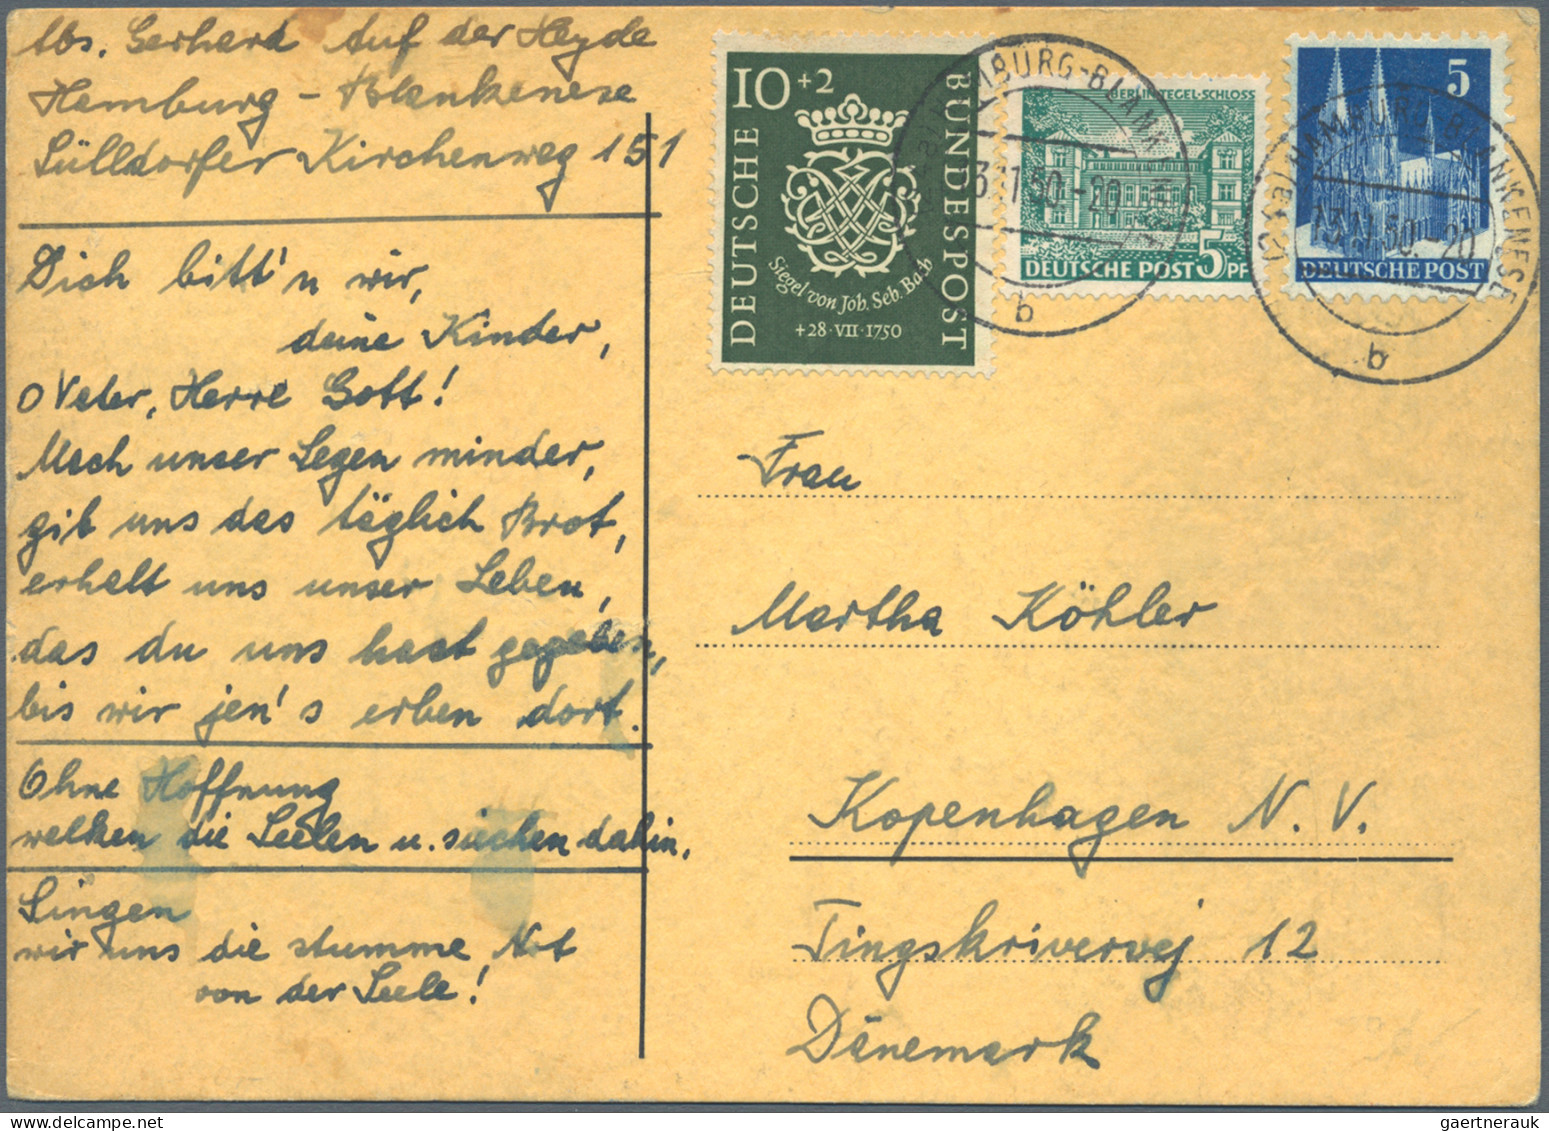 Abs. Gerhard Auf der Heyde
Hamburg - Blankenese
Sülldorfer Kirchenweg 151
Dich bitt'n wir,
deine Kinder,
o Vater, Herre Gott!
Mach unser Segen minder,
gib uns das täglich Brot,
erhalt uns unser Leben,
das du uns hast gegeben,
bis wir jen's erben dort.
Ohne Hoffnung
welken die Seelen u. siechen dahin.
Singen
wir uns die stumme Not
von der Seele!
10+2
DEUTSCHE
BUNDESPOST
Siegel von Joh. Seb. Bach
+28·VII·1750
BERLIN-TEGEL·SCHLOSS
DEUTSCHE POST 5 PF
5
DEUTSCHE POST
HAMBURG-BLANKENESE
13.11.50.-20
b
(24a) HAMBURG-BLANKENESE
13.11.50.-20
b
Frau
Martha Köhler
Kopenhagen N. V.
Tingskrivervej 12
Dänemark
gaertnerauk